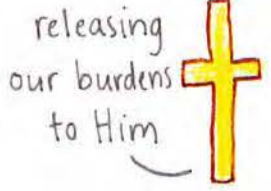 releasing
our burdens
to Him